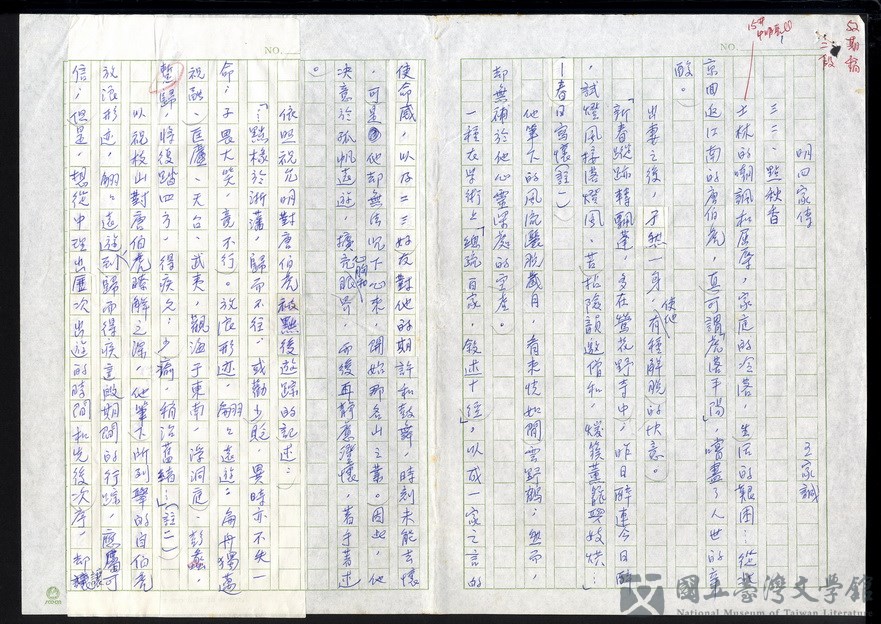 文艷稿
二校
NO.
明四家傳
王家誠
三二、點秋香
士林的嘲諷和屈辱，家庭的冷落，生活的艱困…從
京曲返江南的唐伯虎，真可謂「虎落平陽」，嚐盡了人世的辛
酸。
出妻之後，孑然一身，使他有種解脫的快意。
「新春蹤跡轉飄蓬，多在鶯花野寺中；昨日醉連今日醉
，試燈風接落燈風。苦拈險韻邀僧和，煖簇薰籠與妓烘…」
—春日寫懷（註一）
他筆下的風流灑脫歲月，看來恍如閒雲野鶴；然而，
卻無補於他心靈深處的空虛。
一種在學術上「總疏百家，敘述十經」，以成一家之言的
NO.
使命感，以及二三好友對他的期許和鼓舞，時刻未能去懷
，可是他却無法沉下心來，開始那名山之業。因此，他
決意於孤帆遠遊，擴充心胸和眼界，而後再靜應塵懷，着手著述
。
依照祝允明對唐伯虎被黜後遊踪的記述：
「…黜椽於浙藩，歸而不往。或勸少貶，異時亦不失一
命；子畏大笑，竟不行。放浪形迹，翩翩遠遊；扁舟獨邁
祝融、匡廬、天台、武夷，觀海于東南，浮洞庭、彭蠡，
暫歸，將復踏四方，得疾久；少瘉，稍治舊緒…」（註二）
以祝枝山對唐伯虎瞭解之深，他筆下所列舉的自伯虎
放浪形迹，翩翩遠遊到歸而得疾這段期間的行踪，應屬可
信；但是，想從中理出歷次出遊的時間和先後次序，却
國立臺灣文學館
National Museum of Taiwan Literature